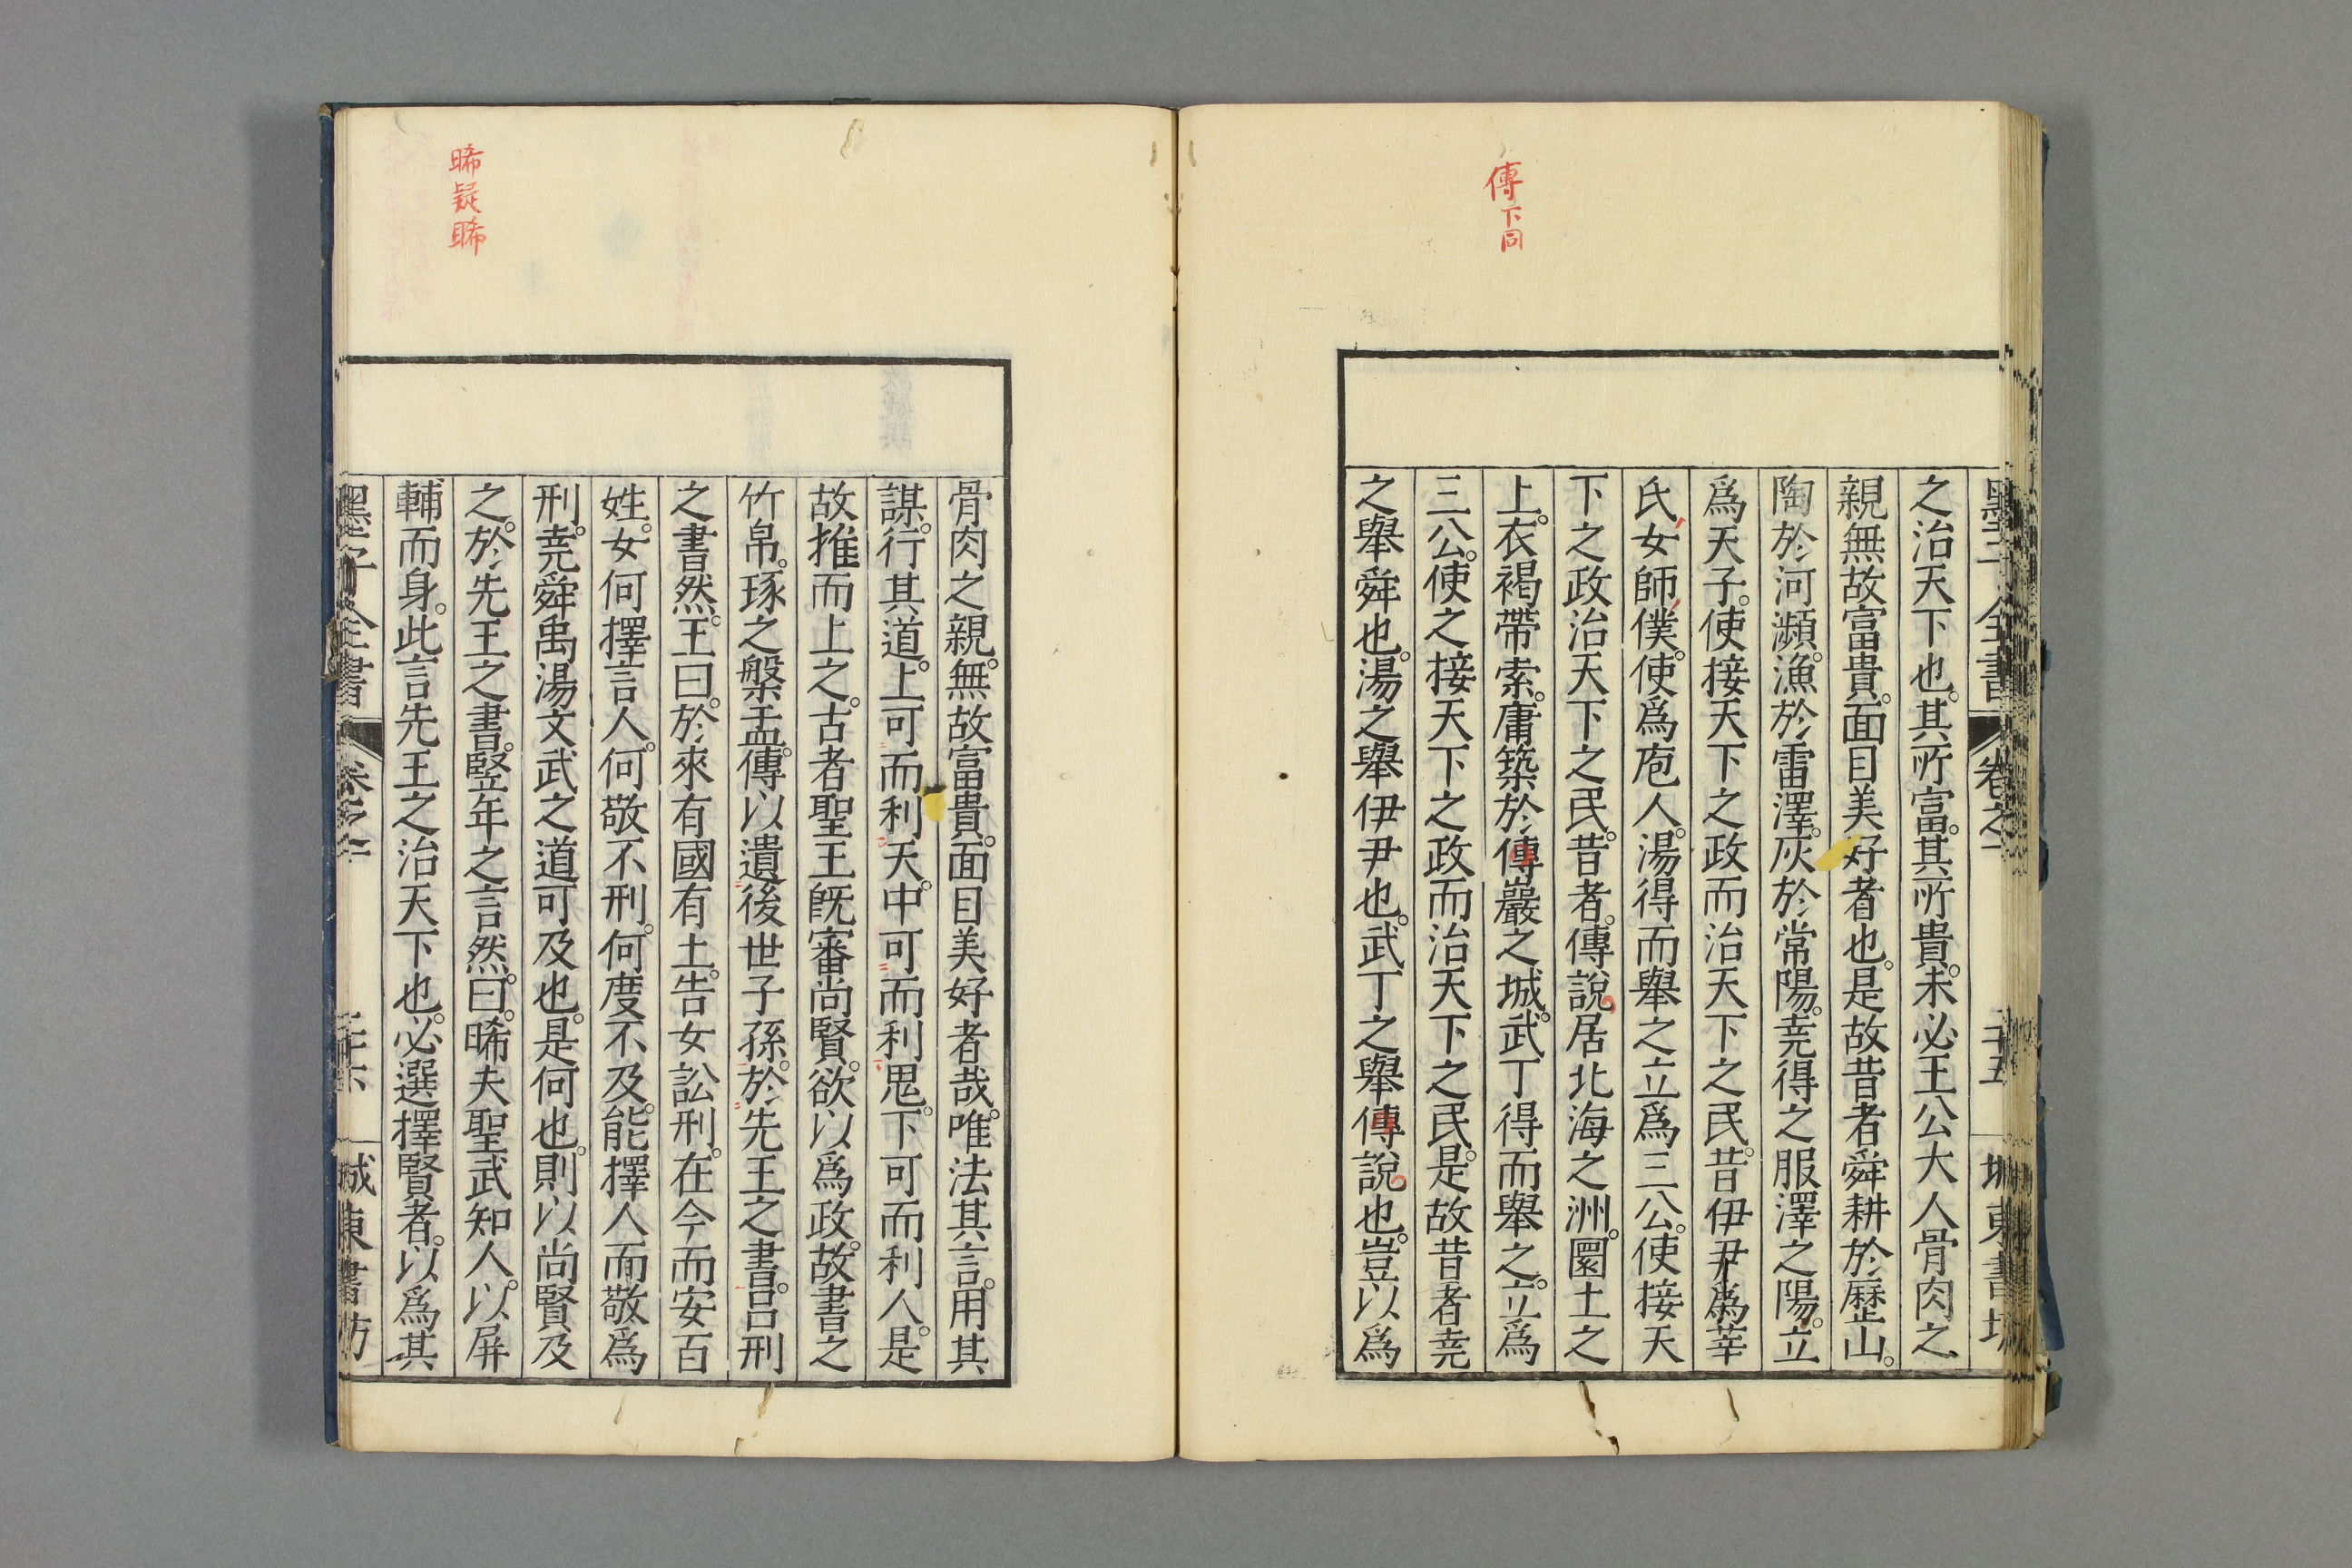 傅下同
墨子全書 卷之二 二十五 城東書坊
之治天下也。其所富。其所貴。未必王公大人骨肉之
親無故富貴。面目美好者也。是故昔者舜耕於歷山。
陶於河瀕。漁於雷澤。灰於常陽。堯得之服澤之陽。立
爲天子。使接天下之政而治天下之民。昔伊尹爲莘
氏女師僕。使爲庖人。湯得而舉之立爲三公。使接天
下之政治天下之民。昔者。傅說居北海之洲。圜土之
上。衣褐帶索。庸築於傅巖之城。武丁得而舉之。立爲
三公。使之接天下之政而治天下之民。是故昔者堯
之舉舜也。湯之舉伊尹也。武丁之舉傅說也。豈以爲
晞疑睎
骨肉之親。無故富貴。面目美好者哉。唯法其言。用其
謀。行其道。上可而利天。中可而利鬼。下可而利人。是
故推而上之。古者聖王旣審尚賢。欲以爲政。故書之
竹帛。琢之槃盂。傳以遺後世子孫。於先王之書。呂刑
之書然。王曰。於來有國有土。告女訟刑。在今而安百
姓。女何擇言人。何敬不刑。何度不及。能擇人而敬爲
刑。堯舜禹湯文武之道可及也。是何也。則以尚賢及
之。於先王之書。竪年之言然。曰。晞夫聖武知人。以屏
輔而身。此言先王之治天下也。必選擇賢者。以爲其
墨子全書 卷之二 二十六 城東書坊